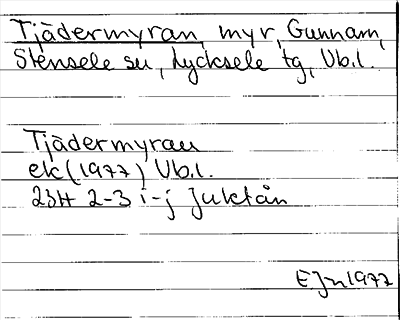 Tjädermyran, myr, Gunnarn,
Stensele sn, Lycksele tg, Vb.l.
Tjädermyran
ek (1977) Vb.l.
23H 2-3 i-j Juktån
EJn 1977